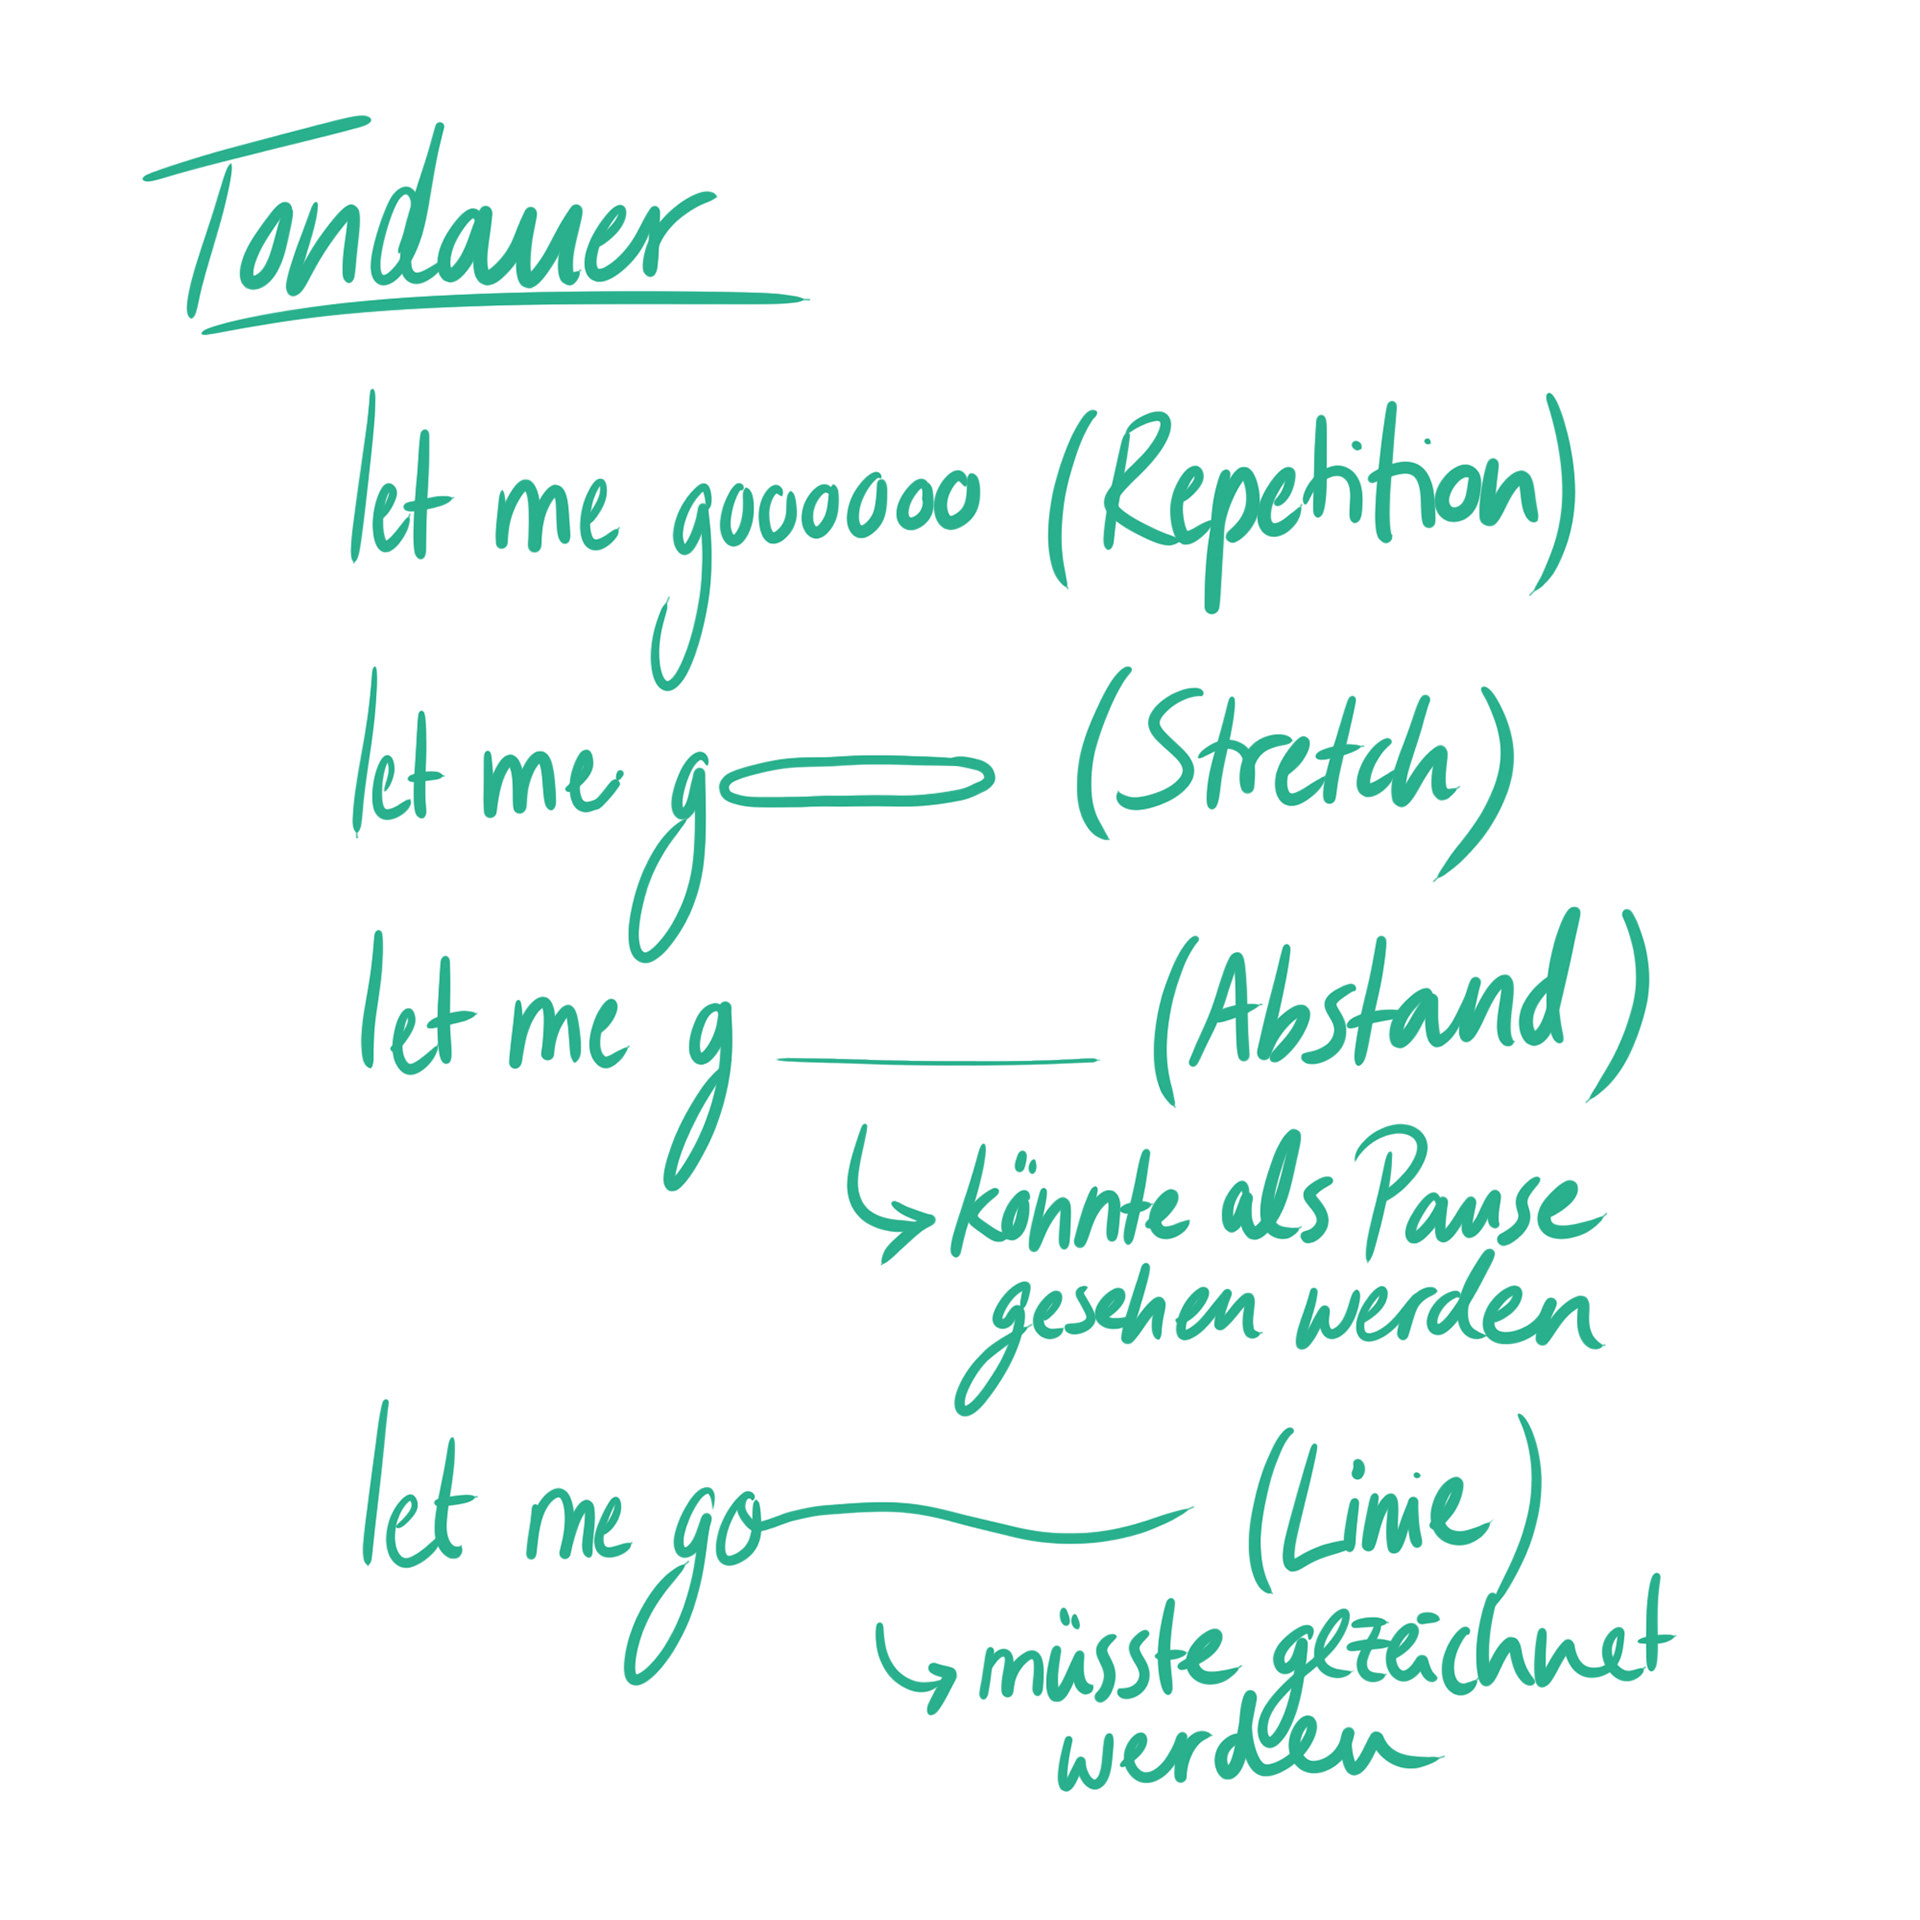 Tondauer
let me gooooooo (Repetition)
let me go (Stretch)
let me g (Abstand)
könnte als Pause
gesehen werden
let me go (Linie)
müsste gezeichnet
werden